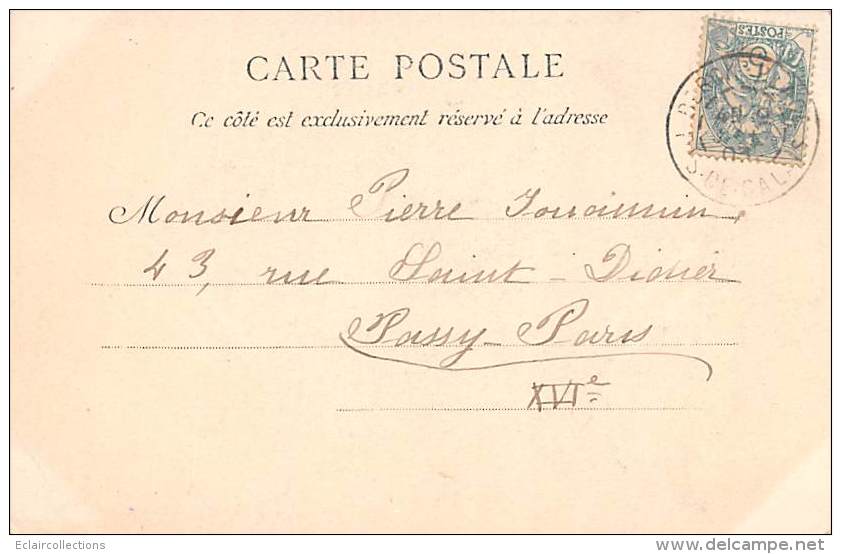 CARTE POSTALE
Ce côté est exclusivement réservé à l'adresse
POSTES
S-DE-CALAIS
Monsieur Pierre
43, rue Saint-Didier
Passy-Paris
XVIe
Eclaircollections
delcampe.net